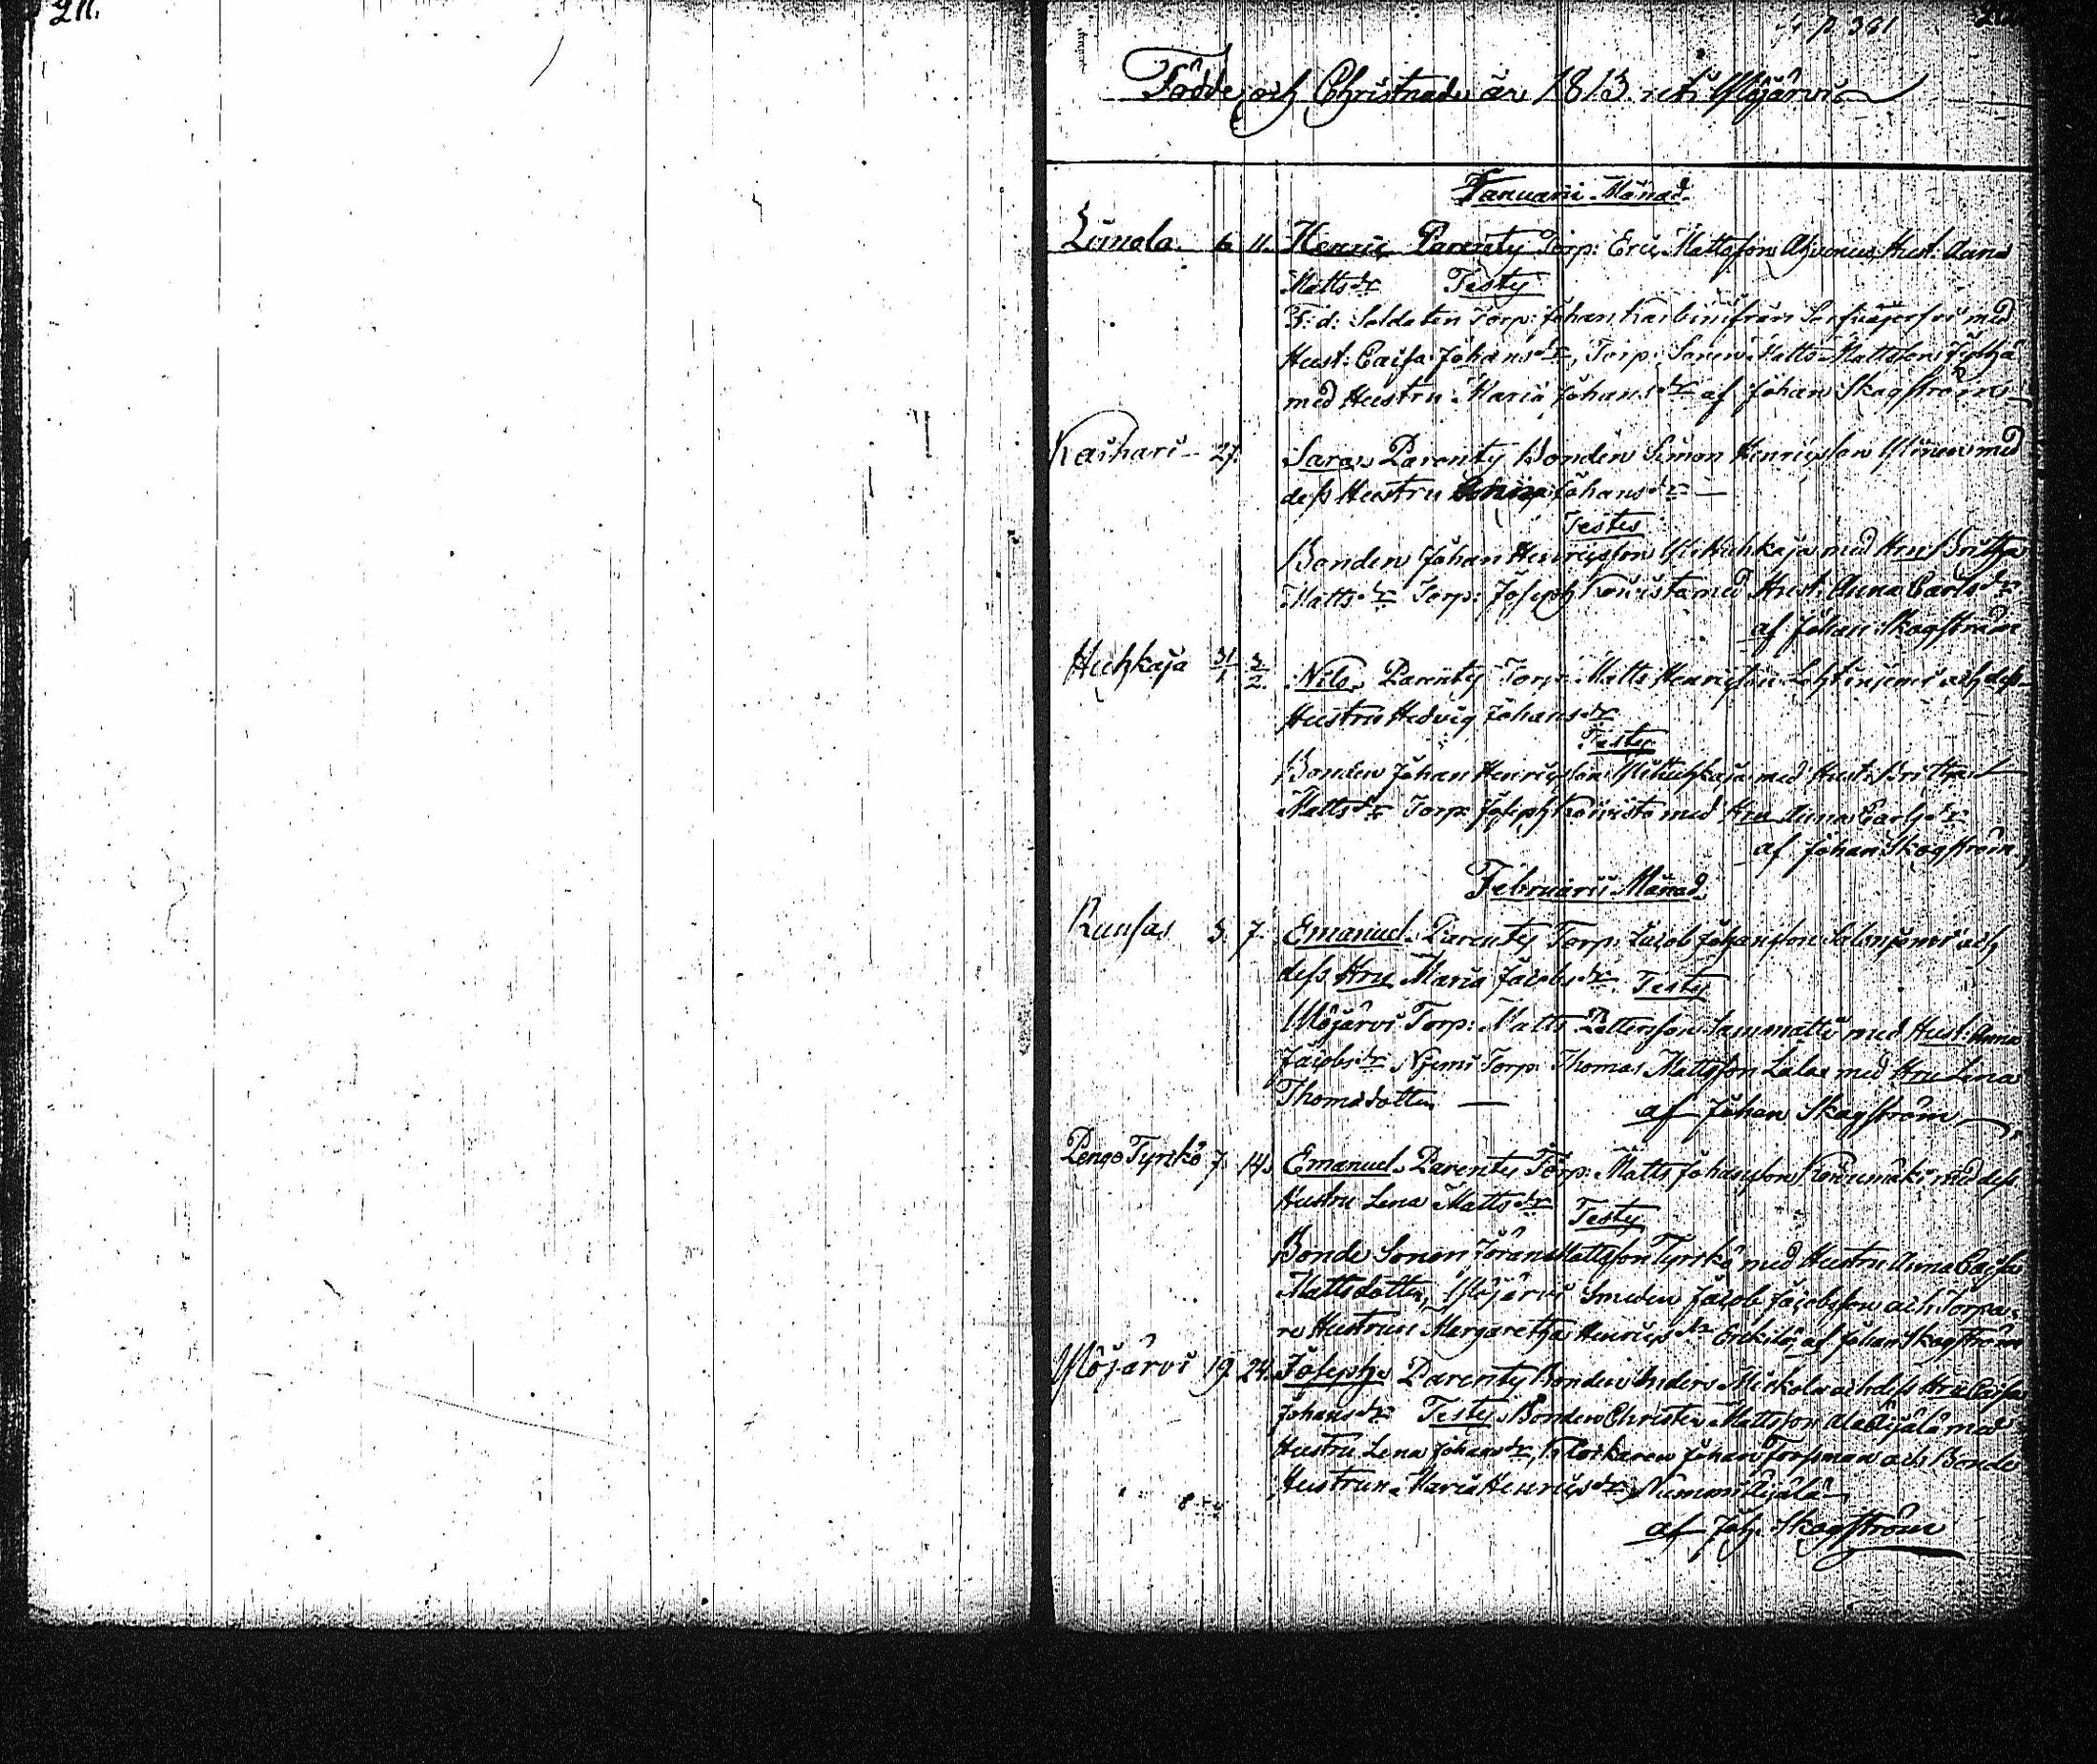 211.
p 381
Födde och Christnade år 1813 uti Ylöjärvi
Januarii Månad
Linnola. 6 11. Henric Parentes Torp: Eric Mattsson Ahvenus Hust. Anna
Mattsdr Testes
F:d: Soldaten Torp: Johan från med
Hust: Caisa Johansdr, Torp: Sonen Matts Mattsson
med Hustru Maria Johansdr af Johan Skogström
Kaihari 27. Sara Parentes Bonden Simon Henricsson Ylinen med
dess Hustru Johansdr
Testes
Bonden Johan Henricsson Yli Huhkaja med Hru Britha
Mattsdr Torp: Joseph Koivisto med Hust: Anna Carlsdr
af Johan Skogström
Huhkaja 31/1 3/2. Nils Parentes Torp: Matts Henricsson Lehtiniemi och dess
Hustru Hedvig Johansdr
Testes
Bonden Johan Henricsson Yli Huhkaja med Hust: Britha
Mattsdr Torp: Joseph Koivisto med Hru Anna Carlsdr
af Johan Skogström
Februarii Månad
Runsas 3. 7. Emanuel Parentes Torp: Jacob Johansson Saloniemi och
dess Hru Maria Jacobsdr Testes
Ylöjärvi Torp: Matts Pettersson Sammatti med Hust: Anna
Jacobsdr Niemi Torp: Thomas Mattsson med Hru Lena
Thomasdotter af Johan Skogström
Pengo Tyrckö 7. 14. Emanuel Parentes Torp: Matts Johansson Koivumäki med dess
Hustru Lena Mattsdr Testes
Bonde Sonen Göran Mattsson Tyrckö med Hustru Anna Caisa
Mattsdotter, Ylöjärvi Smeden Jacob Jacobsson och Torpa-
re Hustrun Margaretha Henricsdr Erckilä af Johan Skogström
Ylöjärvi 19. 24. Joseph Parentes Bonden Anders Mickola och dess Hru Caisa
Johansdr Testes Bonden Christer Mattsson Äijälä med
Hustru Lena Johansdr, Klockaren Johan Forsman och Bonde
Hustrun Maria Henricsdr Nummi Äijälä
af Joh. Skogström